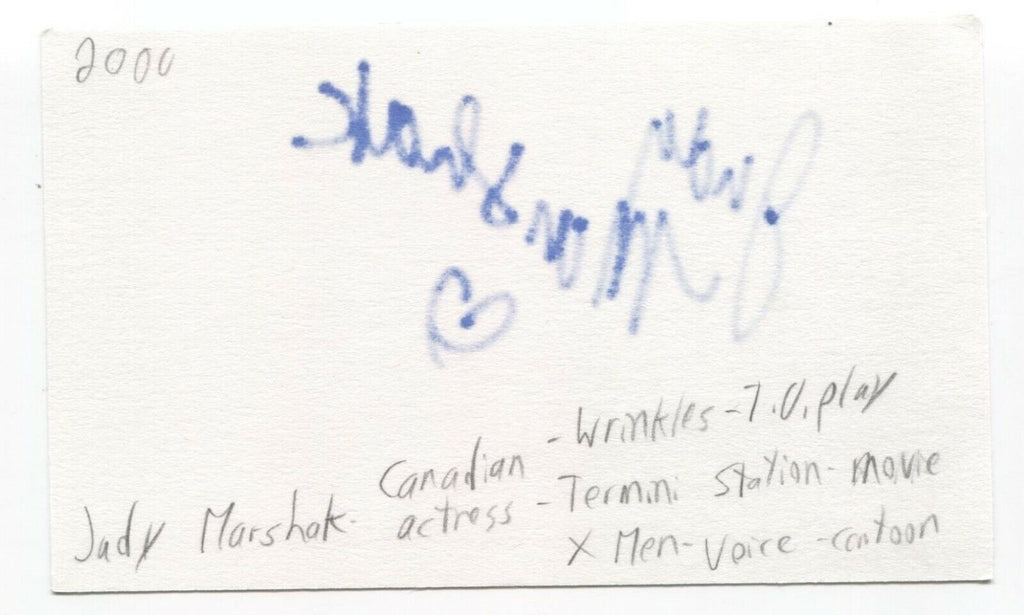 2000
Judy Marshak
Canadian - Wrinkles - T.O. play
Judy Marshak - actress - Termini Station - movie
X Men - Voice - cartoon